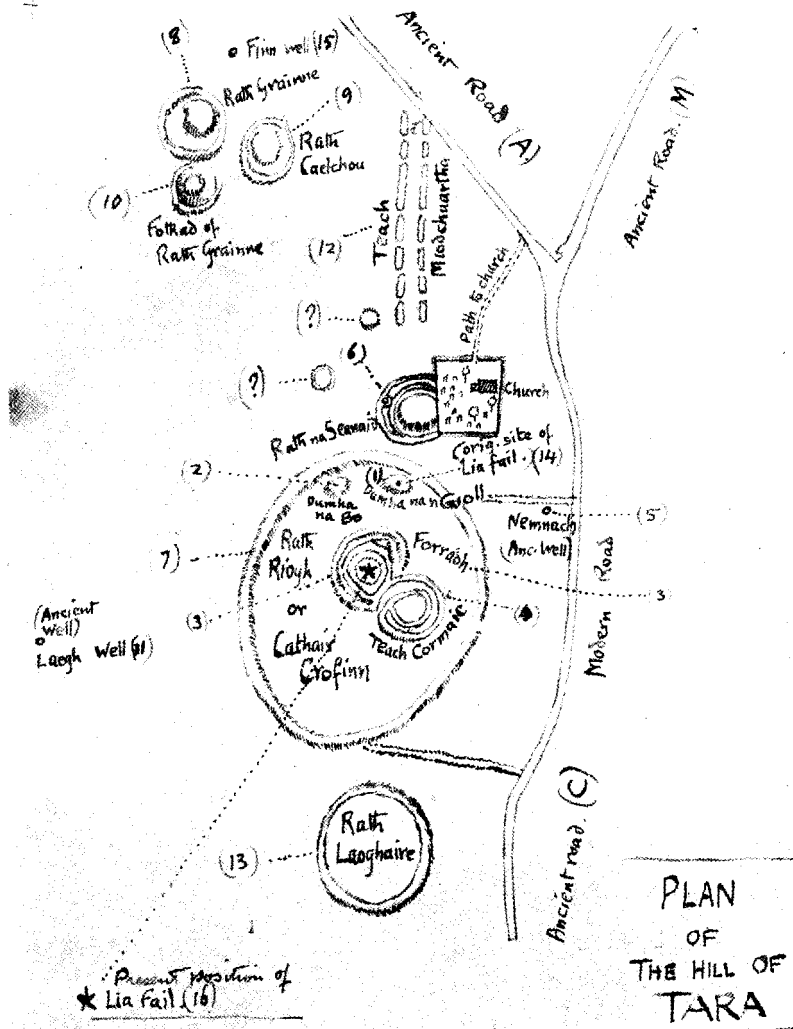 (8)
Finn well (15)
Rath Grainne
(9)
Rath
Caelchou
(10)
Fothad of
Rath Grainne
Ancient Road (A)
Ancient Road. (M)
(12)
Teach
Miodchuarta
Path to church
(?)
(?)
(6)
Church
Rath na Seanaid
(orig. site of
Lia fail. (14)
(2)
(1)
Dumha
na Bo
Dumha nan Goll
Nemnach
(Anc. Well)
(5)
7)
Rath
Riogh
or
Cathair
Crofinn
Forradh
3
(3)
Teach Cormaic
(Ancient
Well)
Laogh Well
Modern Road
Rath
Laoghaire
(13)
Ancient road. (C)
Present position of
Lia Fail (16)
PLAN
OF
THE HILL OF
TARA